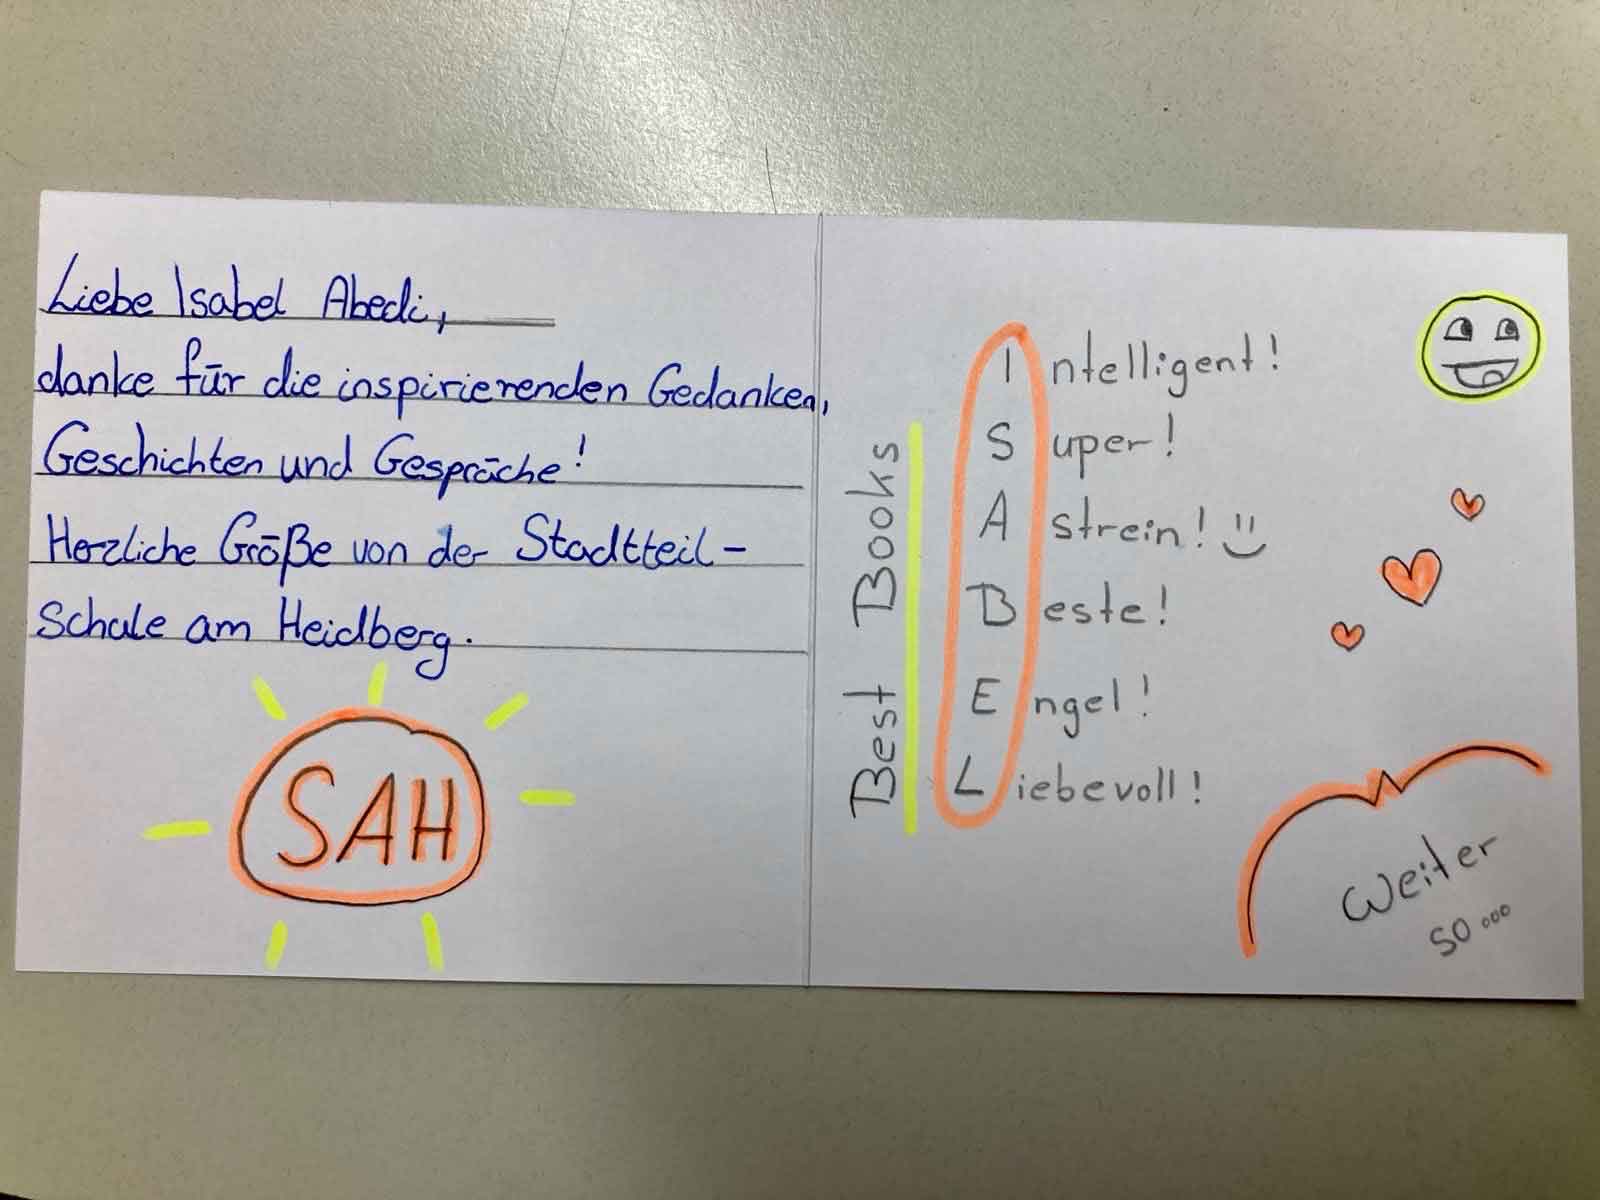 Liebe Isabel Abedi,
danke für die inspirierenden Gedanken,
Geschichten und Gespräche!
Herzliche Grüße von der Stadtteil-
schule am Heidberg.
SAH
Best Books
Intelligent!
Super!
Astrein!
Beste!
Engel!
Liebevoll!
Weiter
so...